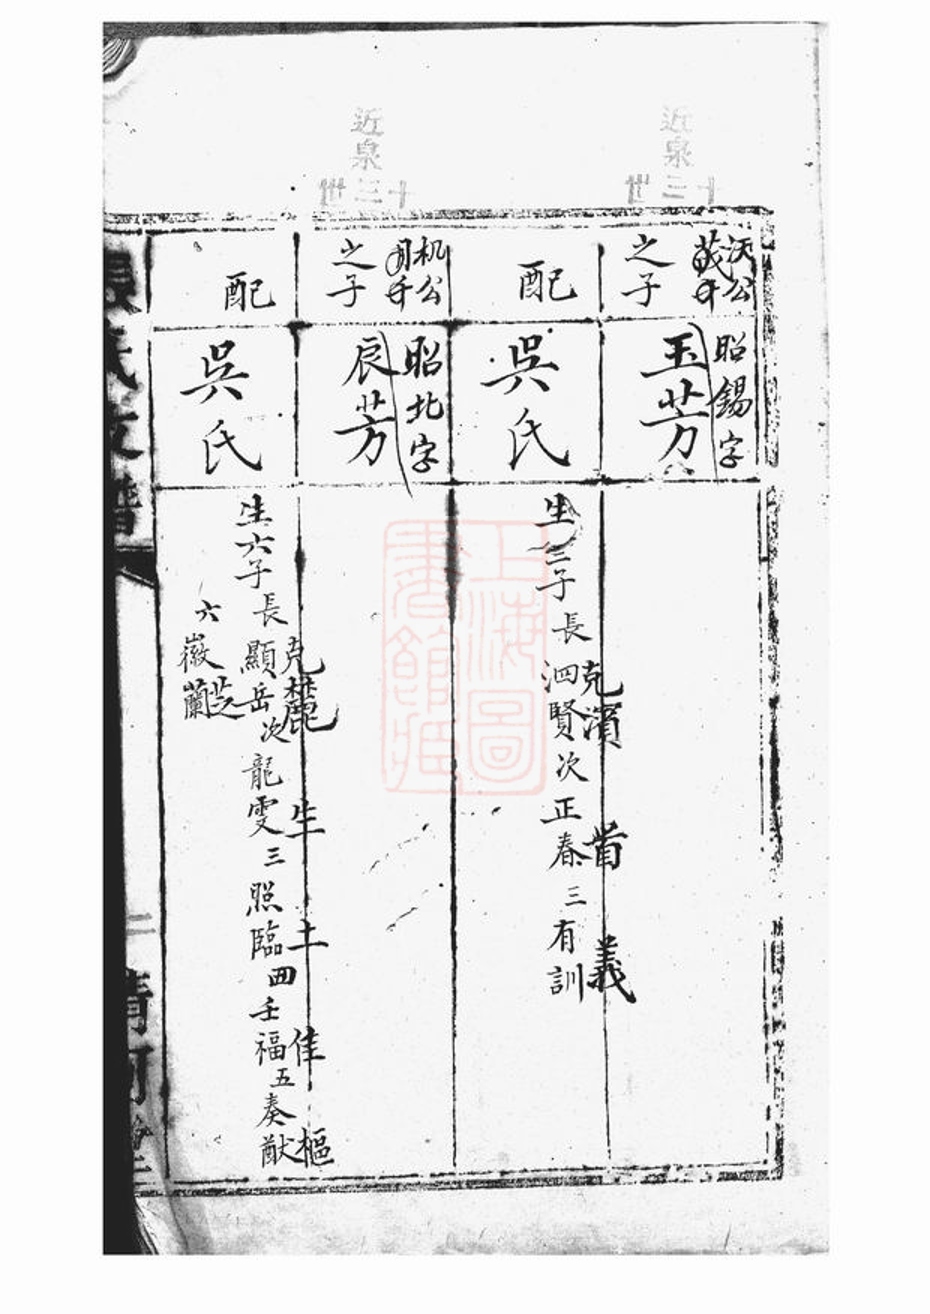 近泉
十三世
近泉
十三世
公
之子
昭錫字
玉芳
配
吳氏
生三子長泗賢次正春三有訓
克濱
義
机公
之子
昭北字
辰芳
配
吳氏
生六子長顯岳次龍雯三照臨四壬福五奏猷
克麓
生
土
佳
樞
六徽蘭
芝
上海圖書館藏